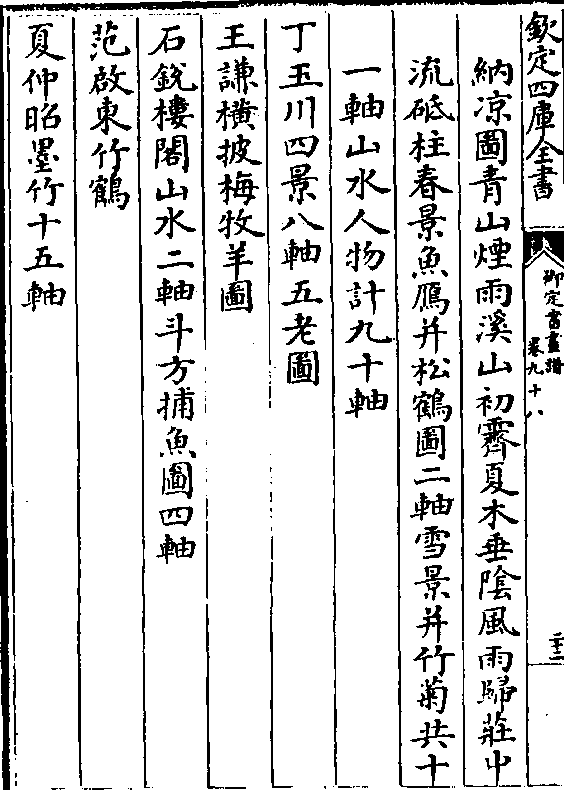 欽定四庫全書
御定書畫譜
卷九十八
二十二
納凉圖青山煙雨溪山初霽夏木垂陰風雨歸莊中
流砥柱春景魚鴈并松鶴圖二軸雪景并竹菊共十
一軸山水人物計九十軸
丁玉川四景八軸五老圖
王謙橫披梅牧羊圖
石銳樓閣山水二軸斗方捕魚圖四軸
范啟東竹鶴
夏仲昭墨竹十五軸